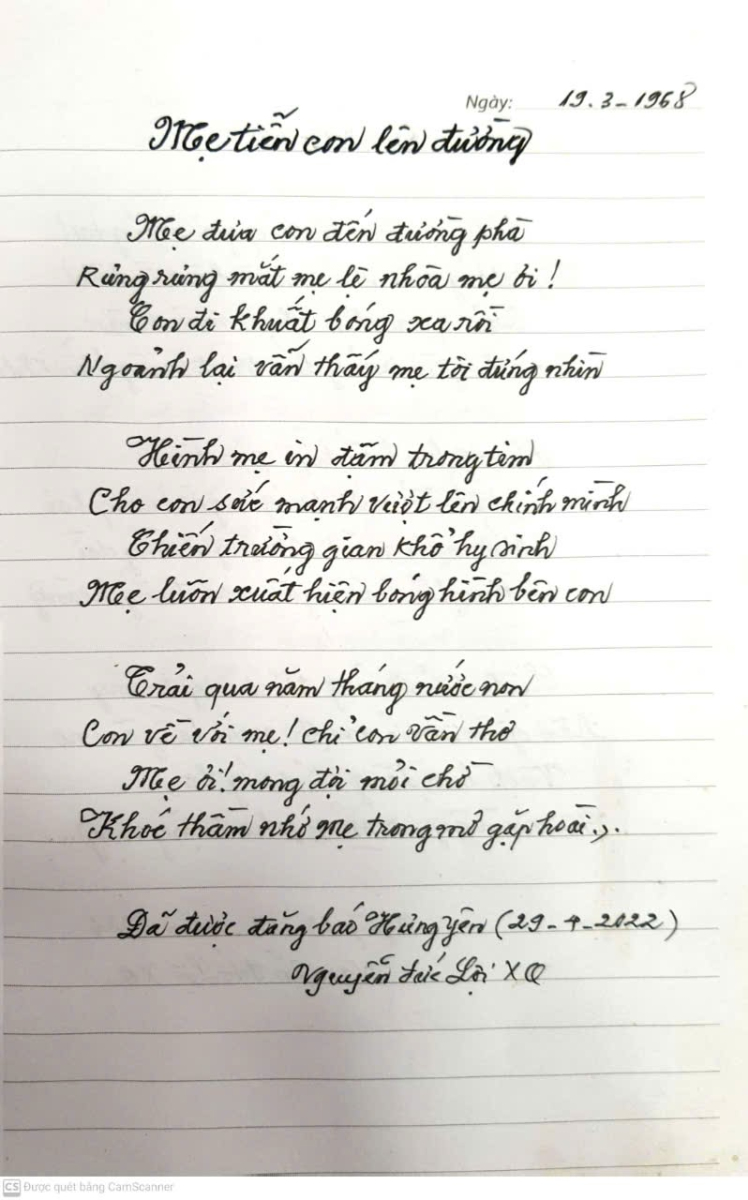 Ngày: 19.3-1968
Mẹ tiễn con lên đường
Mẹ đưa con đến đường phà
Rưng rưng mắt mẹ lệ nhòa mẹ ơi!
Con đi khuất bóng xa rồi
Ngoảnh lại vẫn thấy mẹ tôi đứng nhìn
Hình mẹ in đậm trong tim
Cho con sức mạnh vượt lên chính mình
Chiến trường gian khổ hy sinh
Mẹ luôn xuất hiện bóng hình bên con
Trải qua năm tháng nước non
Con về với mẹ! chỉ con vần thơ
Mẹ ơi! mong đợi mỏi chờ
Khóc thầm nhớ mẹ trong mơ gặp hoài...
Đã được đăng báo Hưng Yên (29-4-2022)
Nguyễn đức Lợi XQ
CS Được quét bằng CamScanner